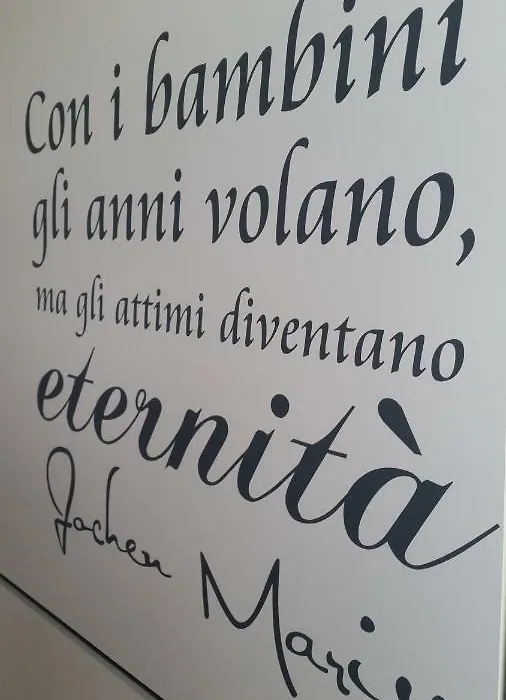 Con i bambini
gli anni volano,
ma gli attimi diventano
eternità
Jochen